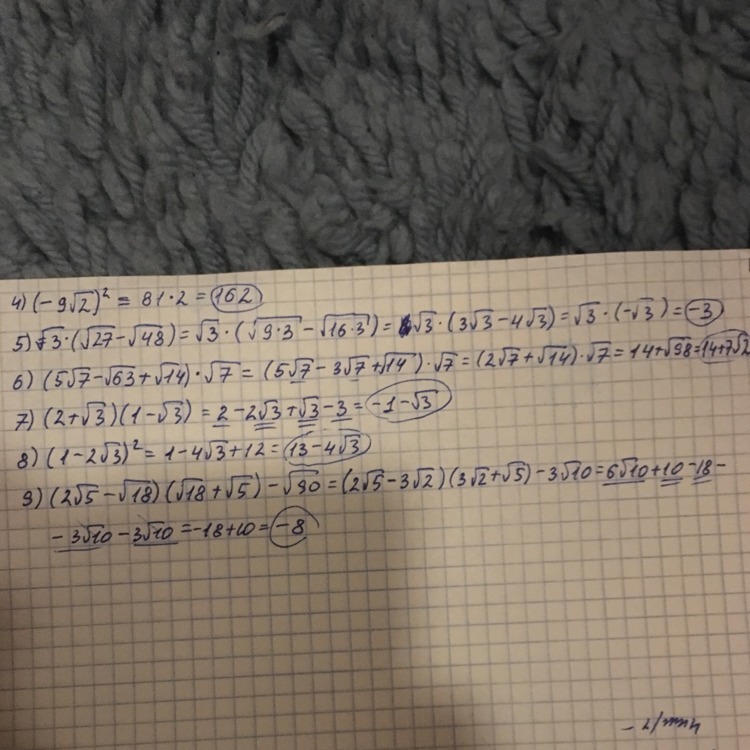 4) (-9√2)² = 81·2 = 162
5) √3·(√27-√48) = √3·(√9·3 - √16·3) = √3·(3√3-4√3) = √3·(-√3) = -3
6) (5√7-√63+√14)·√7 = (5√7-3√7+√14)·√7 = (2√7+√14)·√7 = 14+√98 = 14+7√2
7) (2+√3)(1-√3) = 2-2√3+√3-3 = -1-√3
8) (1-2√3)² = 1-4√3+12 = 13-4√3
9) (2√5-√18)(√18+√5)-√90 = (2√5-3√2)(3√2+√5)-3√10 = 6√10+10-18-
-3√10-3√10 = -18+10 = -8